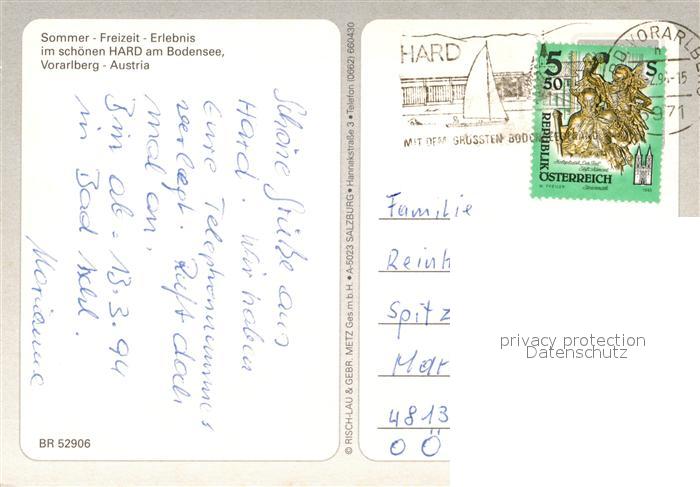 Sommer - Freizeit - Erlebnis
im schönen HARD am Bodensee,
Vorarlberg - Austria
Schöne Grüße aus
Hard. Wir haben
Eure Telephonnummer
verlegt. Ruft doch
mal an,
Bin ab - 13.3.94
in Bad Ischl.
Marianne
BR 52906
© RISCH-LAU & GEBR. METZ Ges.m.b.H. • A-5023 SALZBURG • Hannakstraße 3 • Telefon (0662) 660430
HARD
MIT DEM GRÖSSTEN
VORARLBE
2.94-15
6971
5 50 S
REPUBLIK
ÖSTERREICH
Steiermark
1993
Familie
Reinh
Spitz
Mar
4813
OÖ
privacy protection
Datenschutz